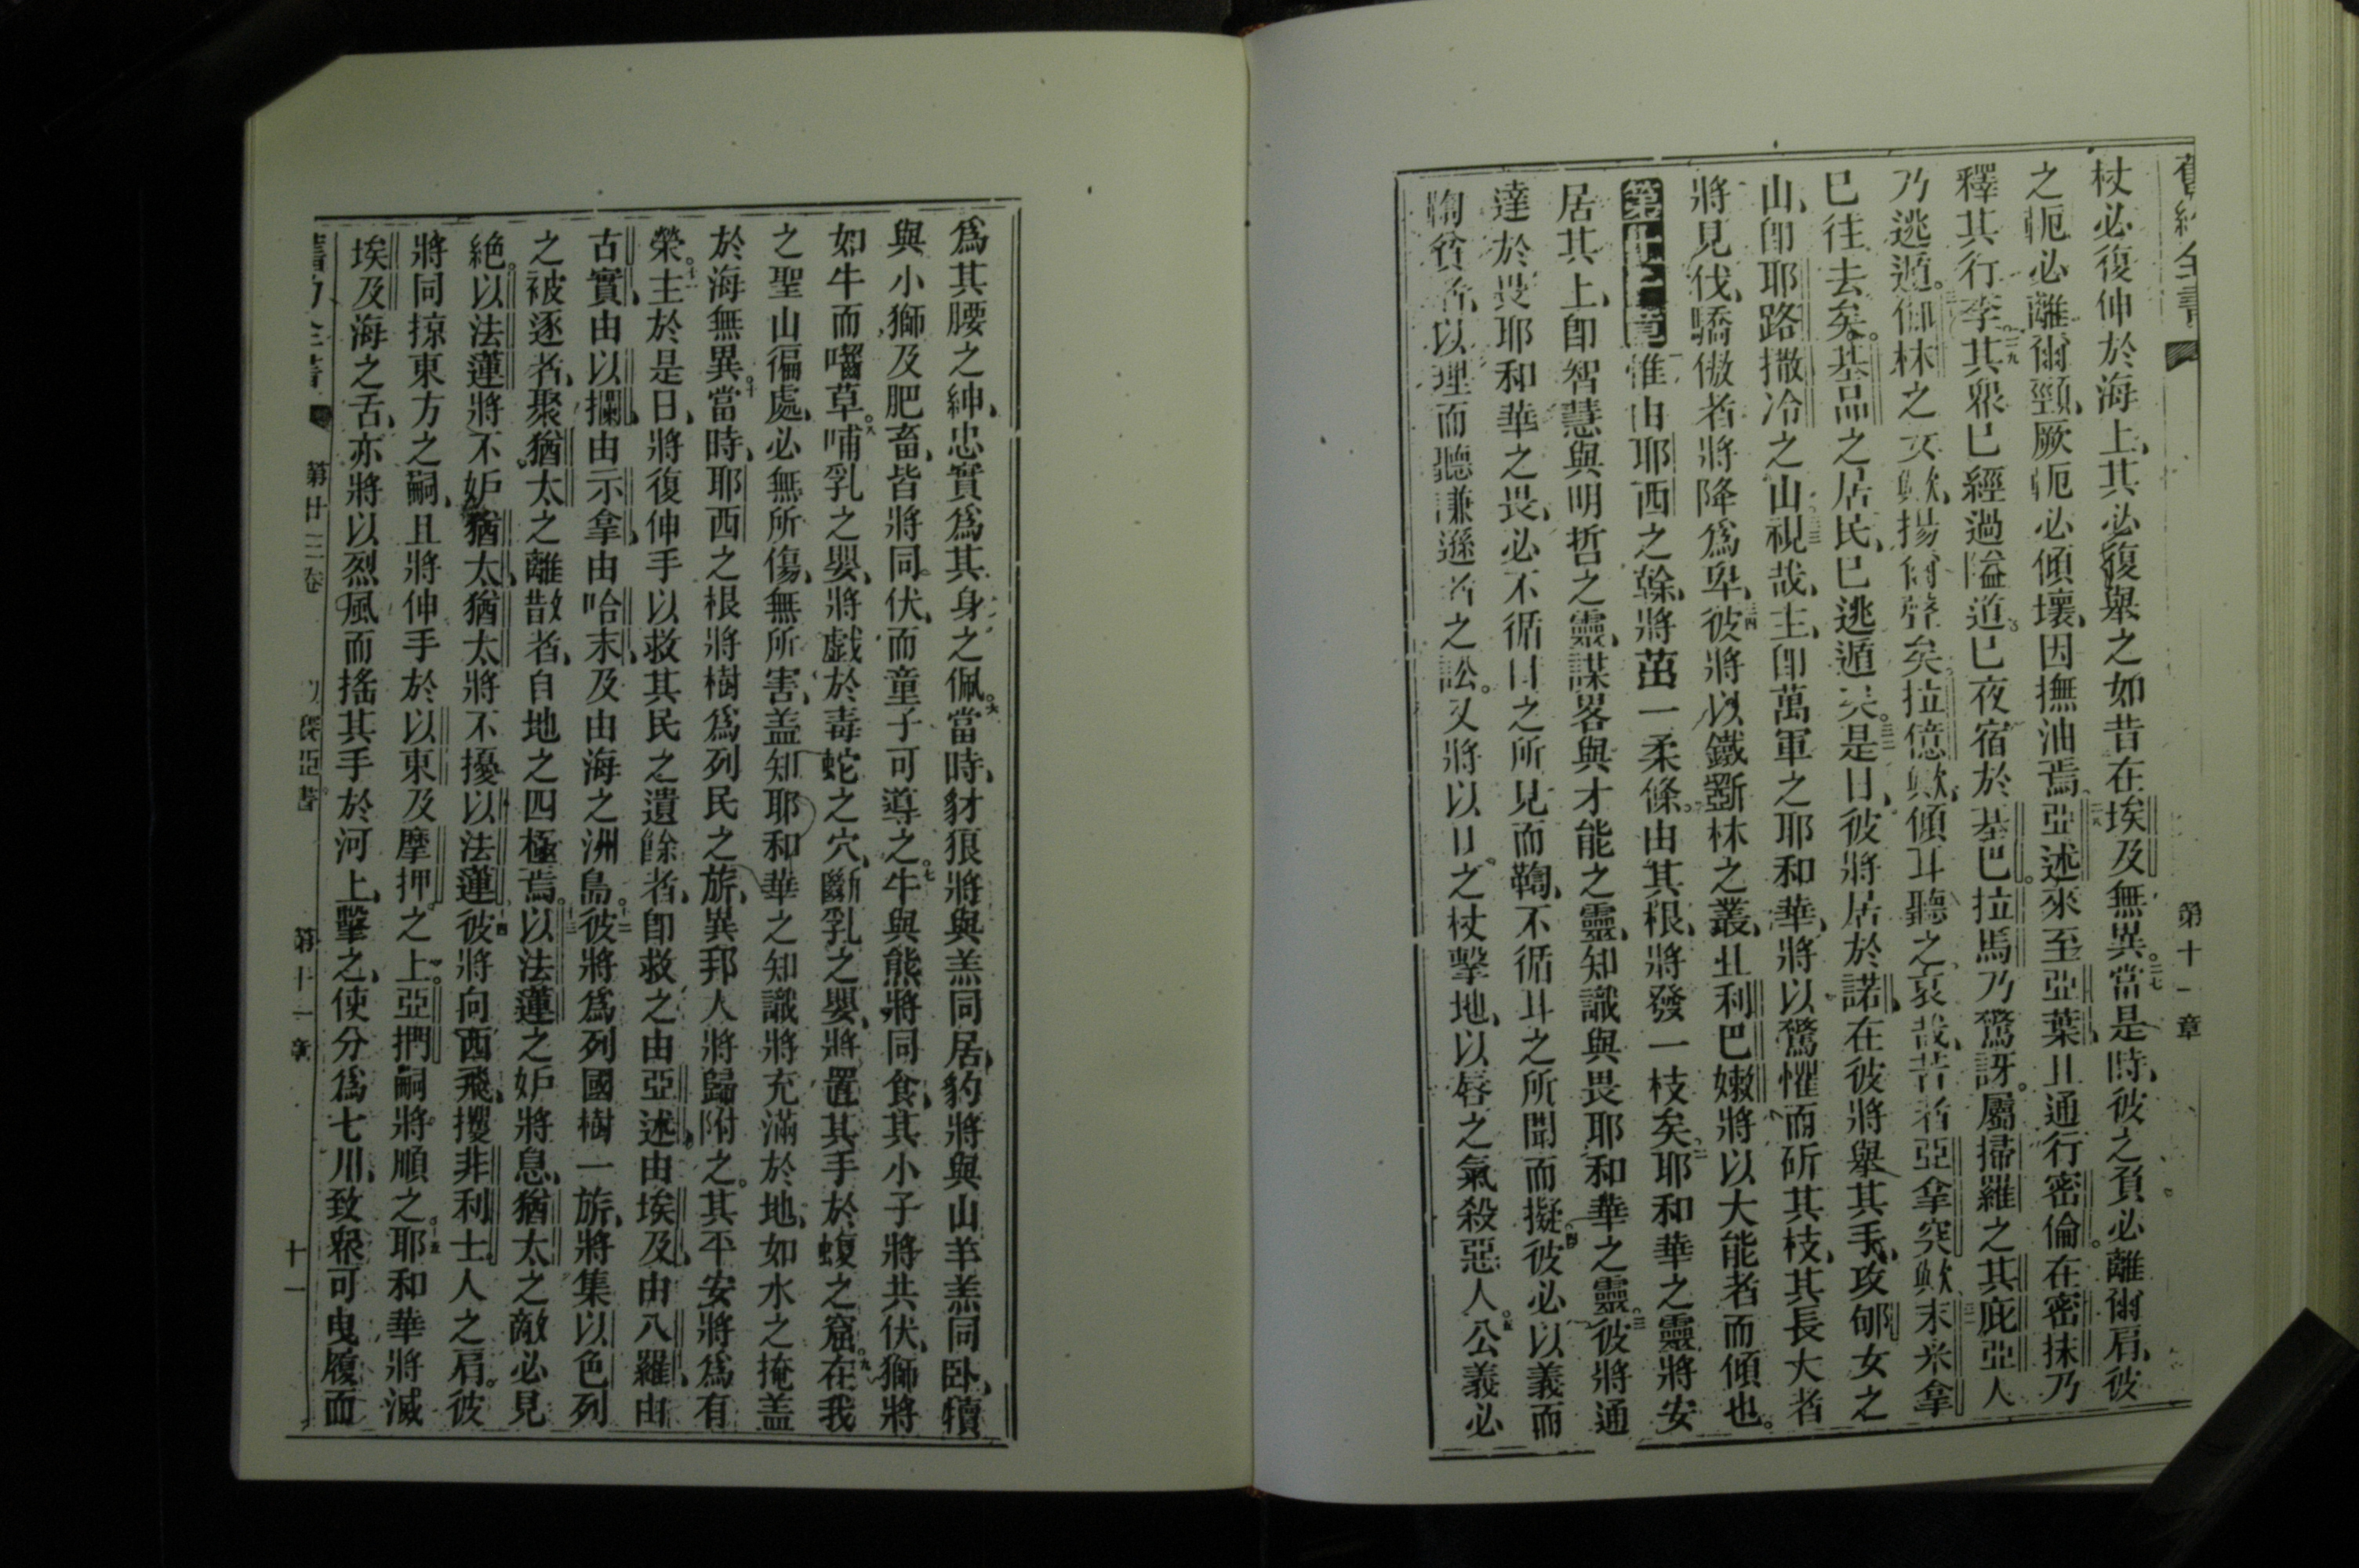 第十一章
杖必復伸於海上、其必復舉之如昔在埃及無異。二七當是時、彼之負必離爾肩、彼
之軛必離爾頸、厥軛必傾壞、因撫油焉。二八亞述來至亞葉、且通行密倫。在密抹乃
釋其行李。二九其眾已經過隘道。已夜宿於基巴。拉馬乃驚訝。屬掃羅之其庇亞人
乃逃遁。三十伽林之女歟、揚爾聲矣。拉億歟、傾耳聽之、哀哉、苦者亞拿突歟。三一末米拿
已往去矣。基品之居民、已逃遁矣。三二是日、彼將居於諾、在彼將舉其手、攻郇女之
山、即耶路撒冷之山。三三視哉、主、即萬軍之耶和華、將以驚懼而斫其枝、其長大者
將見伐、驕傲者將降爲卑、三四彼將以鐵斲林之叢、且利巴嫩將以大能者而傾也。
第十一章 惟由耶西之榦、將茁一柔條。由其根、將發一枝矣。二耶和華之靈將安
居其上、即智慧與明哲之靈、謀畧與才能之靈、知識與畏耶和華之靈。三彼將通
達於畏耶和華之畏、必不循目之所見而鞫、不循耳之所聞而擬。四彼必以義而
鞫貧者、以理而聽謙遜者之訟。又將以口之杖擊地、以唇之氣殺惡人。五公義必
爲其腰之紳、忠實爲其身之佩。六當時、豺狼將與羔同居、豹將與山羊羔同臥、犢
與小獅及肥畜、皆將同伏、而童子可導之。七牛與熊將同食、其小子將共伏、獅將
如牛而嚙草。八哺乳之嬰、將戲於毒蛇之穴、斷乳之嬰、將置其手於蝮之窟。九在我
之聖山徧處、必無所傷、無所害、盖知耶和華之知識將充滿於地、如水之掩盖
於海無異。十當時、耶西之根將樹爲列民之旂、異邦人將歸附之。其平安將爲有
榮。十一主於是日、將復伸手以救其民之遺餘者、即救之由亞述、由埃及、由八羅、由
古實、由以攔、由示拿、由哈末、及由海之洲島。十二彼將爲列國樹一旂、將集以色列
之被逐者、聚猶太之離散者、自地之四極焉。十三以法蓮之妒將息、猶太之敵必見
絕。以法蓮將不妒猶太、猶太將不擾以法蓮。十四彼將向西飛、攫非利士人之肩。彼
將同掠東方之嗣、且將伸手於以東及摩押之上。亞捫嗣將順之。十五耶和華將滅
埃及海之舌、亦將以烈風而搖其手於河上、擊之、使分爲七川、致眾可曳履而
第廿三卷 第十一章 十一